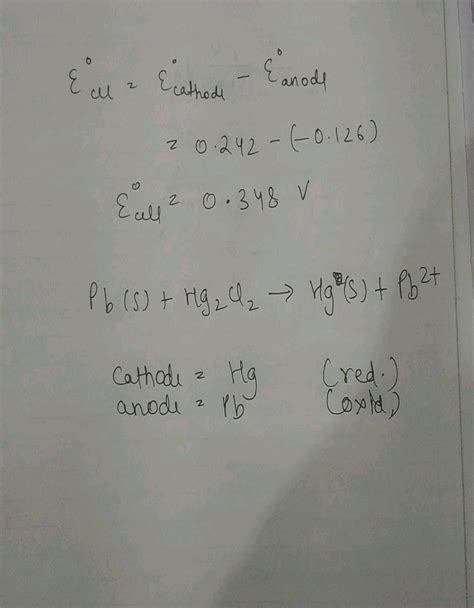 ε°cell = ε°cathode - ε°anode
= 0.242 - (-0.126)
ε°cell = 0.348 V
Pb(s) + Hg2Cl2 → Hg(s) + Pb2+
Cathode = Hg (red.)
anode = Pb (oxid)